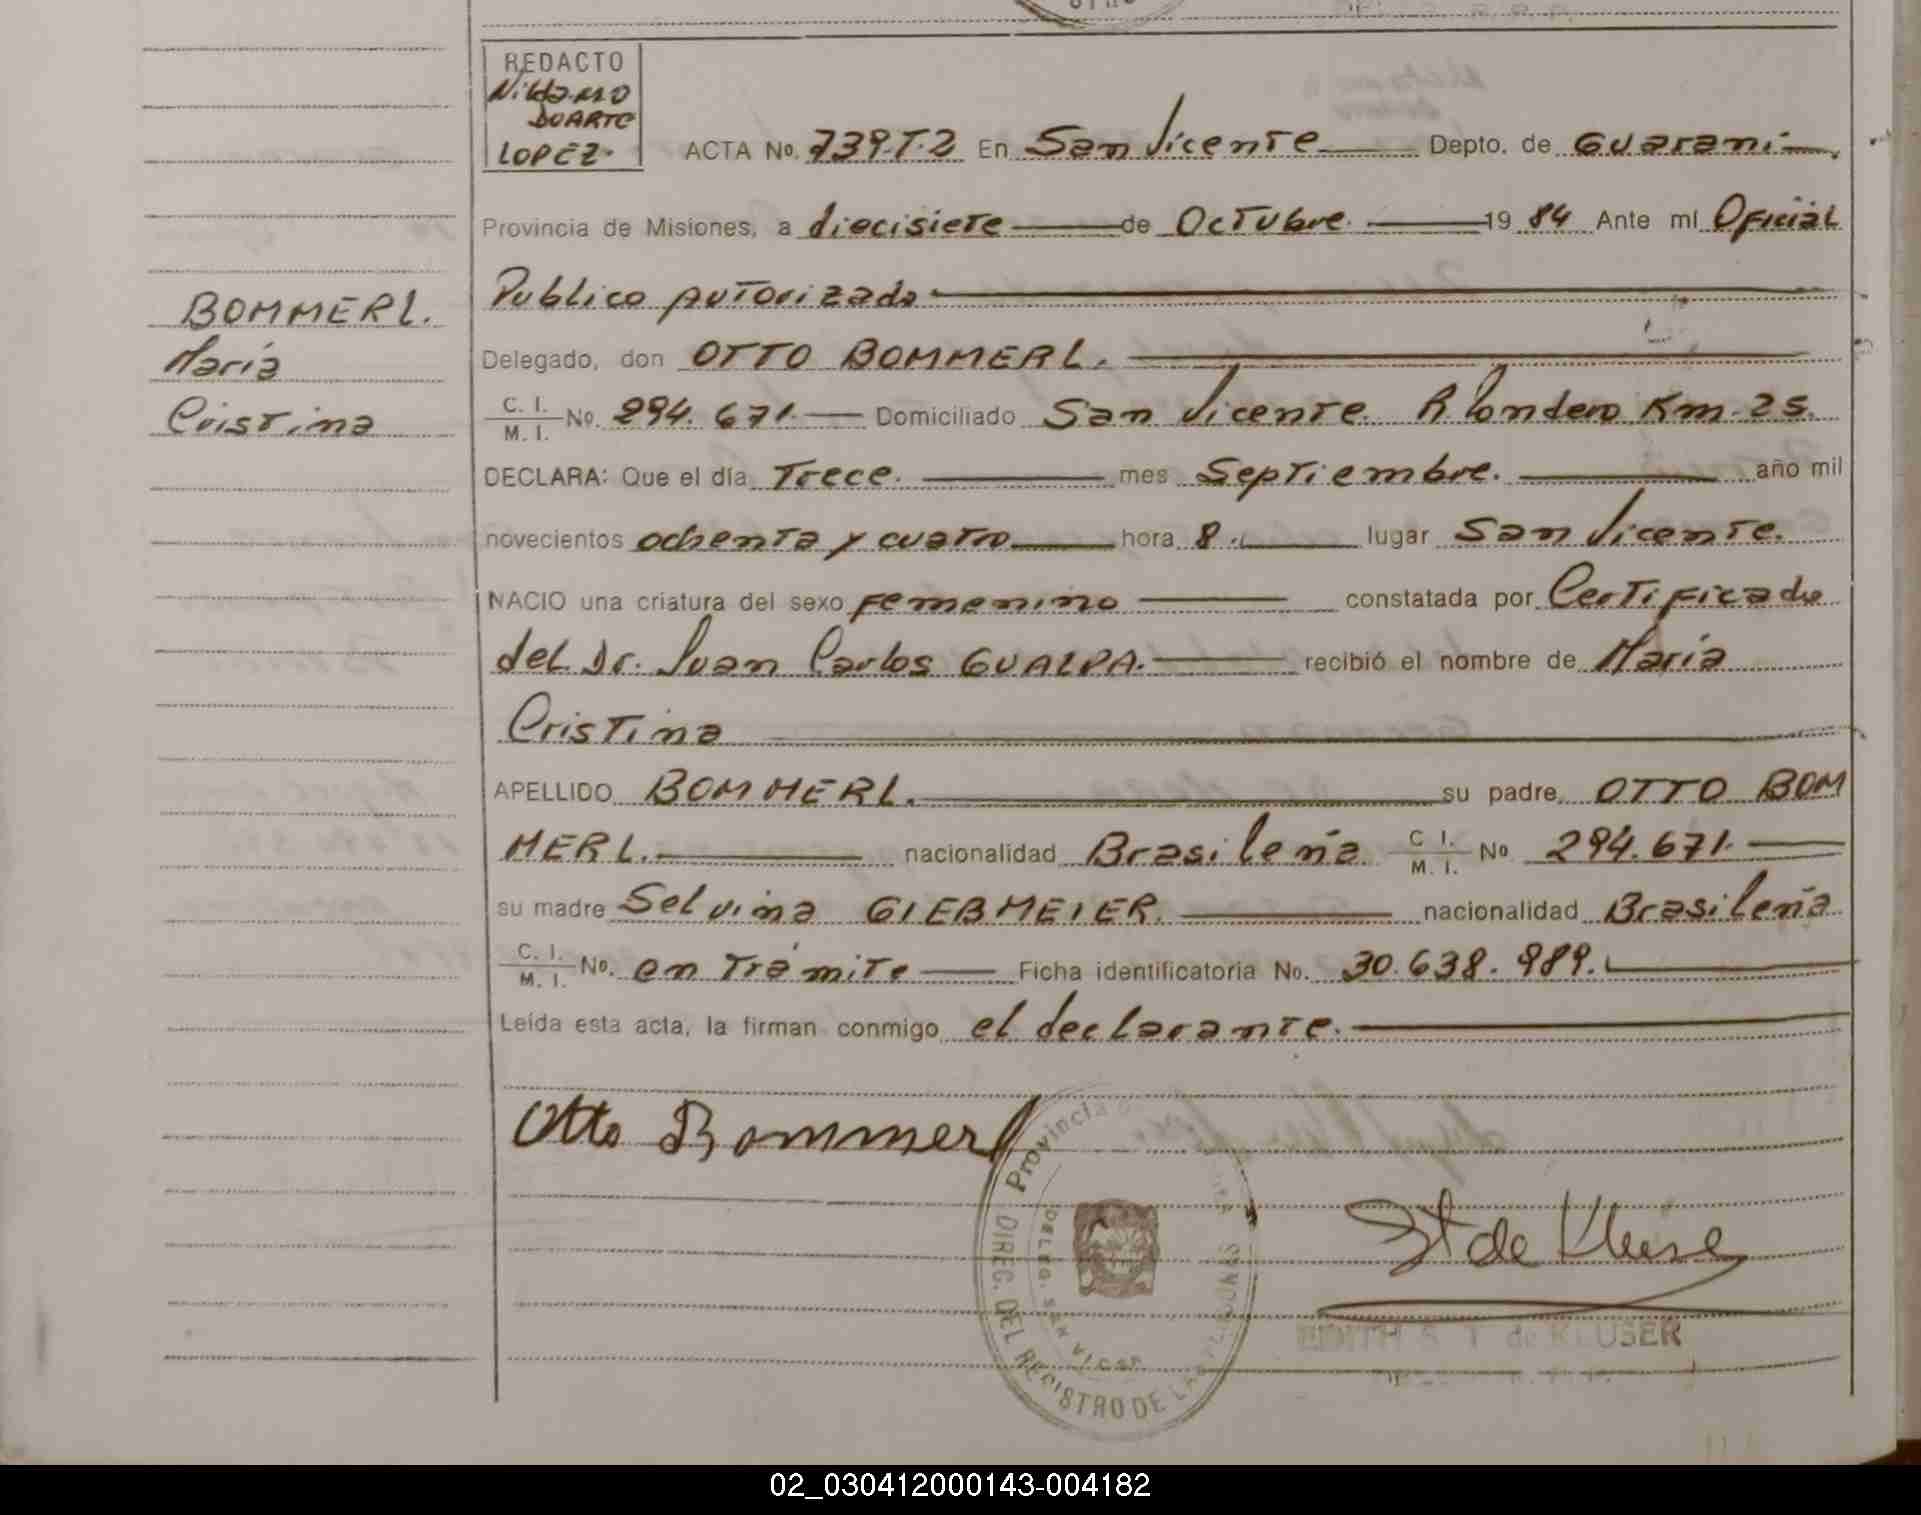 REDACTO
Nildamo
DUARTE
LOPEZ.
ACTA No. 739.T.2 En San Vicente Depto. de Guarani
Provincia de Misiones, a diecisiete de Octubre. 19 84 Ante mí Oficial
Publico autorizado
Delegado, don OTTO BOMMERL.
C. I.
M. I. No. 294.671. Domiciliado San Vicente. R Londero Km. 25.
DECLARA: Que el día Trece. mes Septiembre. año mil
novecientos ochenta y cuatro hora 8. lugar San Vicente.
NACIO una criatura del sexo femenino constatada por Certificado
del Dr. Juan Carlos GUALPA. recibió el nombre de María
Cristina
APELLIDO BOMMERL. su padre OTTO BOM
MERL. nacionalidad Brasileña C I. M. I. No 294.671.
su madre Selvina GIEBMEIER. nacionalidad Brasileña
C. I.
M. I. No. en Trámite Ficha identificatoria No. 30.638.989.
Leída esta acta, la firman conmigo el declarante.
BOMMERL.
María
Cristina
Otto Bommerl
Provincia
DIREC. DEL REGISTRO DE LAS
DELEG. SAN VICEN
St de Kluse
EDITH S T de KLUSER
02_030412000143-004182